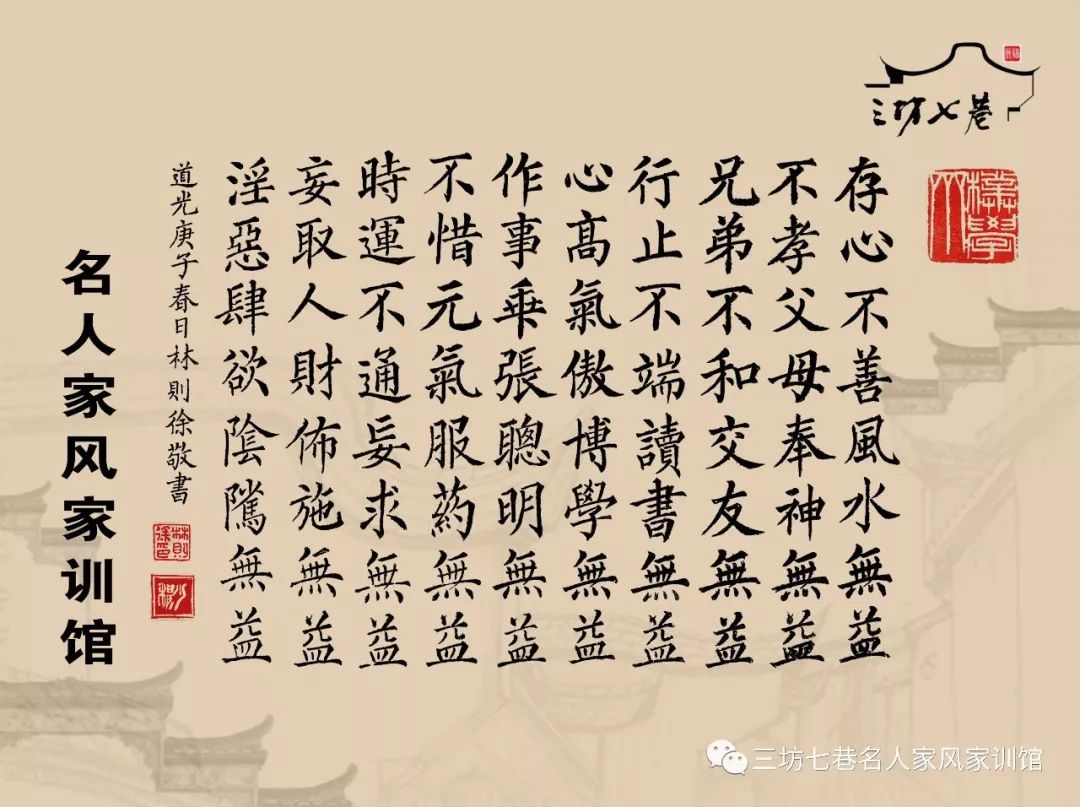 三坊七巷
存心不善風水無益
不孝父母奉神無益
兄弟不和交友無益
行止不端讀書無益
心高氣傲博學無益
作事乖張聰明無益
不惜元氣服藥無益
時運不通妄求無益
妄取人財佈施無益
淫惡肆欲陰騭無益
道光庚子春日林則徐敬書
林則徐印
名人家风家训馆
三坊七巷名人家风家训馆